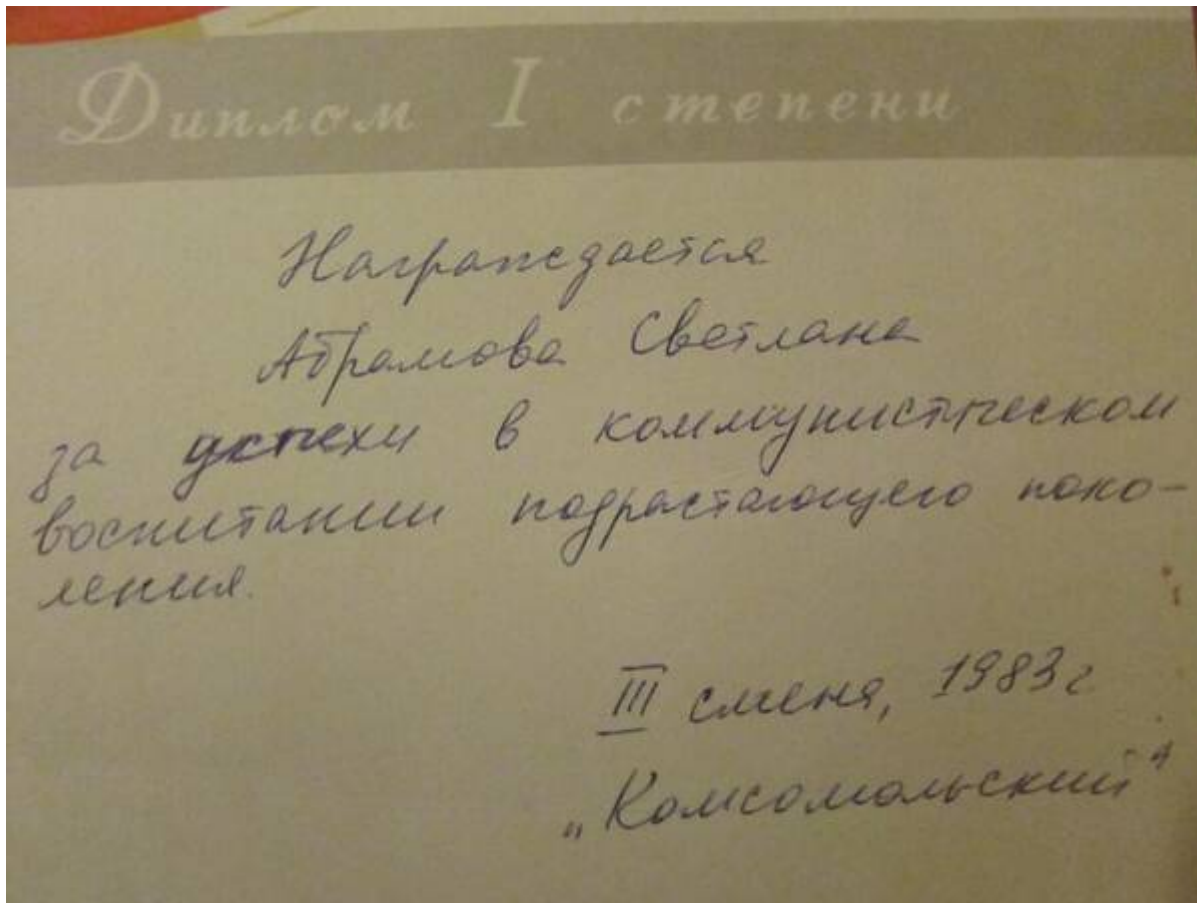 Диплом I степени
Награждается
Абрамова Светлана
за успехи в коммунистическом
воспитании подрастающего поко-
ления.
III смена, 1983г
„Комсомольский"